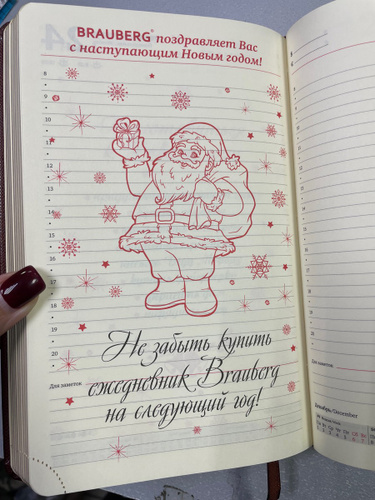 BRAUBERG® поздравляет Вас
с наступающим Новым годом!
8
9
10
11
12
13
14
15
16
17
18
19
20
Для заметок
Не забыть купить
ежедневник Brauberg
на следующий год!
Для заметок
Декабрь/December